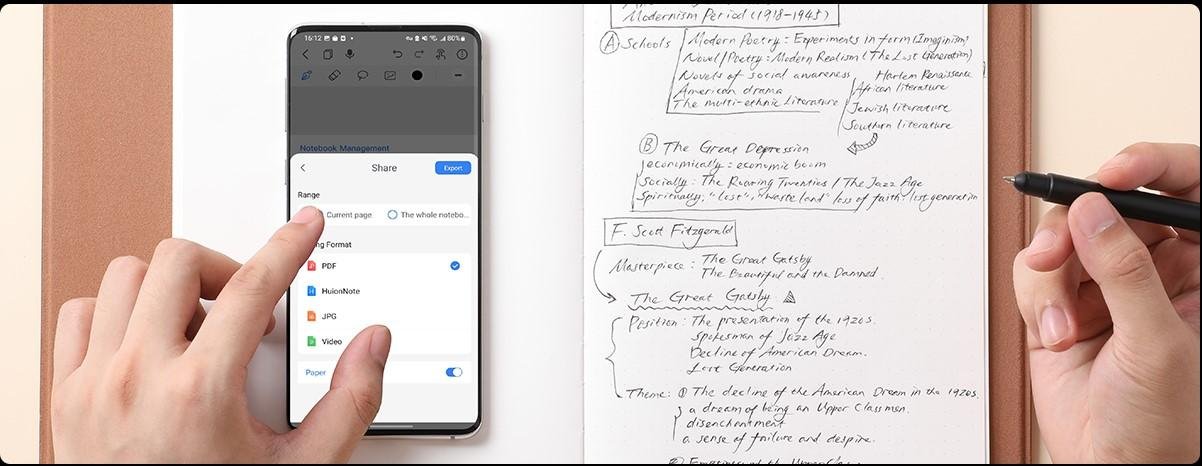 16:12
80%
Notebook Management
Share
Export
Range
Current page
The whole notebo...
ng Format
PDF
HuionNote
JPG
Video
Paper
Modernism Period (1918-1945)
Ⓐ Schools
Modern Poetry: Experiments in form (Imaginism)
Novel/Poetry: Modern Realism (The Lost Generation)
Novels of social awareness
Harlem Renaissance
American drama
African literature
The multi-ethnic Literature
Jewish literature
Southern literature
Ⓑ The Great Depression
economically: economic boom
Socially: The Roaring Twenties / The Jazz Age
Spiritually, "lost", "waste land" loss of faith: lost generation
F. Scott Fitzgerald
Masterpiece: The Great Gatsby
The Beautiful and the Damned.
The Great Gatsby
Position: The presentation of the 1920s.
spokesman of Jazz Age
Decline of American Dream.
Lost Generation
Theme: ① The decline of the American Dream in the 1920s.
a dream of being an Upper Classmen.
disenchantment
a sense of failure and despire.